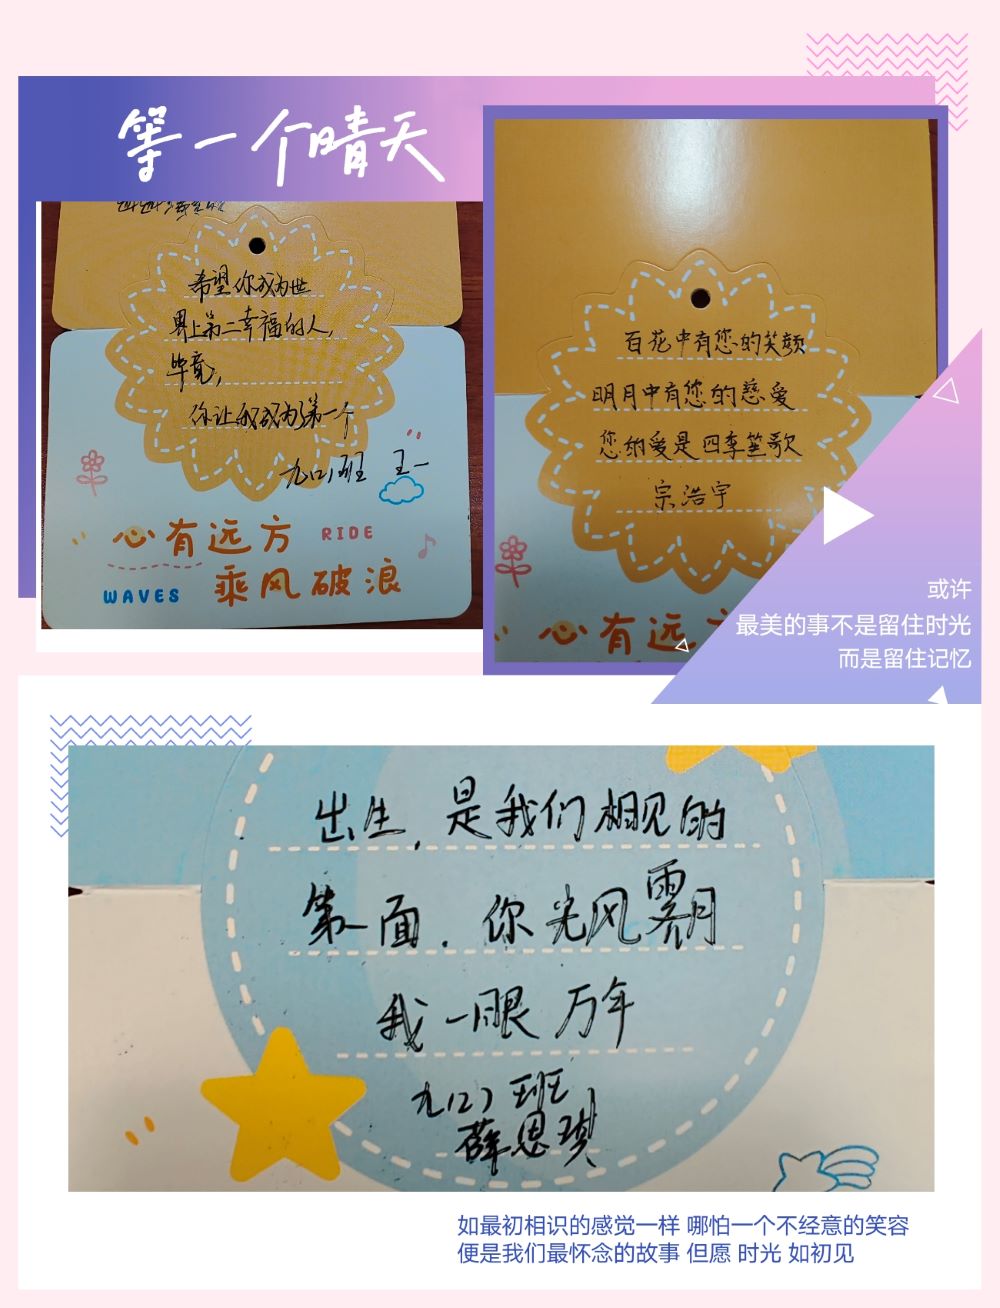 等一个晴天
希望你成为世
界上第二幸福的人,
毕竟,
你让我成为第一个
九(2)班 王一
心有远方 RIDE
WAVES 乘风破浪
百花中有您的笑颜
明月中有您的慈爱
您的爱是四季笙歌
宗浩宇
心有远
或许
最美的事不是留住时光
而是留住记忆
出生,是我们相见的
第一面.你光风霁月
我一眼万年
九(2)班
薛思琪
如最初相识的感觉一样 哪怕一个不经意的笑容
便是我们最怀念的故事 但愿 时光 如初见